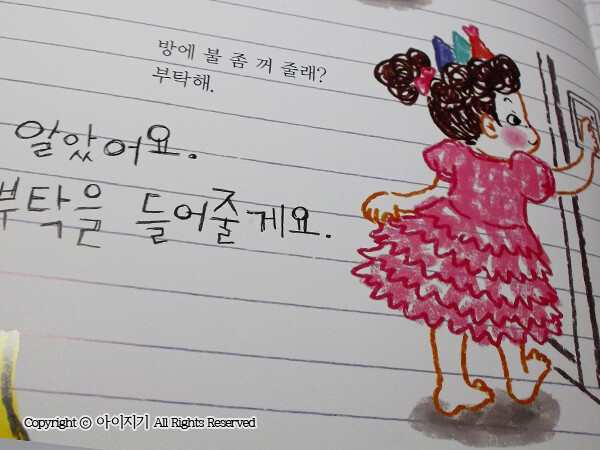 방에 불 좀 꺼 줄래?
부탁해.
알았어요.
부탁을 들어줄게요.
Copyright ⓒ 아이지기 All Rights Reserved